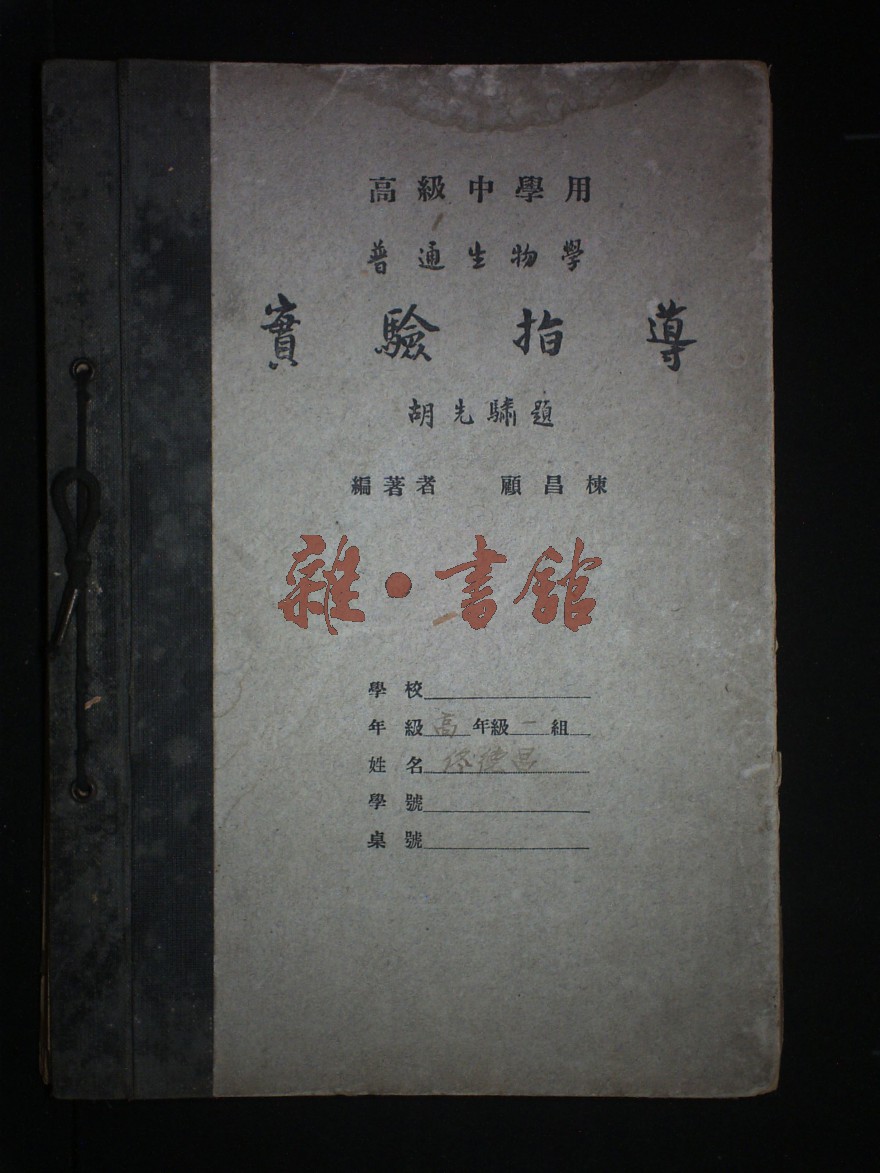 高級中學用
普通生物學
實驗指導
胡先驌題
編著者 顧昌棟
雜·書館
學校
年級 高 年級 一 組
姓名
學號
桌號